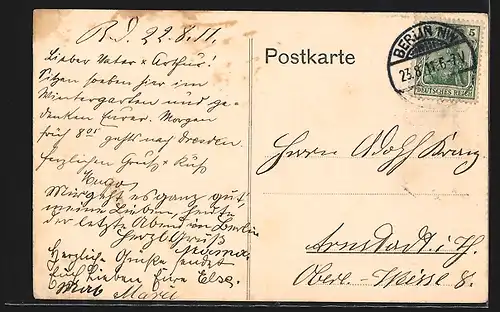 B. d. 22.8.11.
Lieber Vater & Arthur!
Sitzen soeben hier im
Wintergarten und ge-
denken Eurer. Morgen
früh 8 01 gehts nach Dresden.
Herzlichen Gruß & Kuß
Hugo
Mir geht es ganz gut,
meine Lieben, heute
der letzte Abend in Berlin
Herzl. Gruß
Herzliche Grüße sendet
Euch Lieben Eure Else.
Postkarte
BERLIN NW
23.8.11. 6-7V
5
DEUTSCHES REICH
Herrn Adolf Kranz
Arnstadt i. Th.
Obere-Weisse 8.